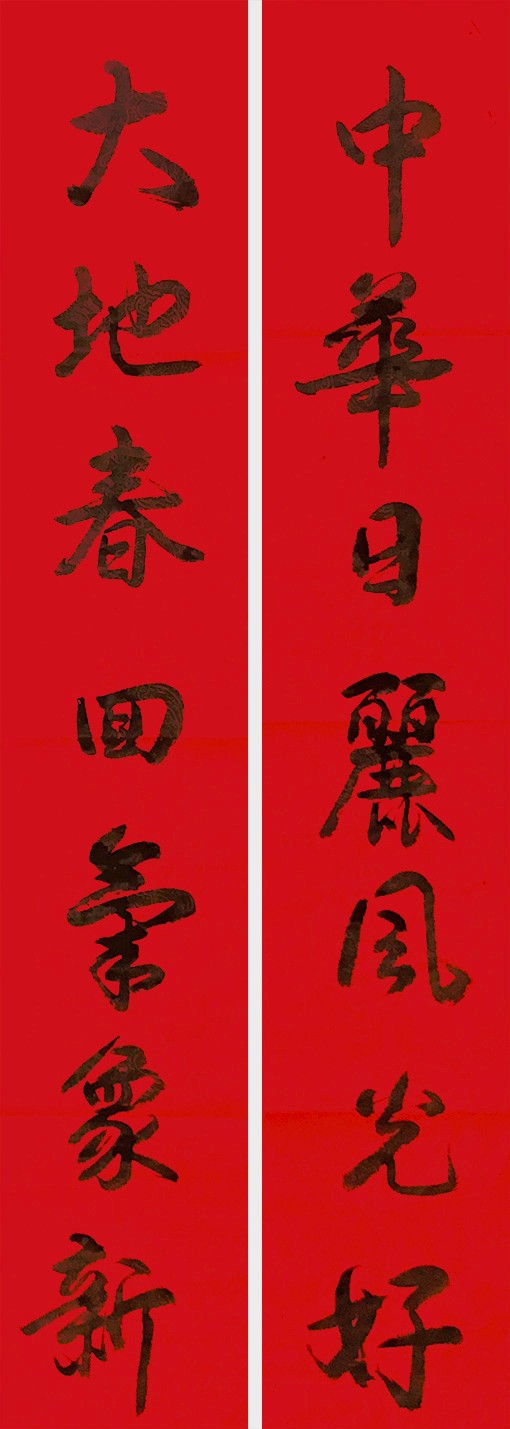 中華日麗風光好
大地春回氣象新